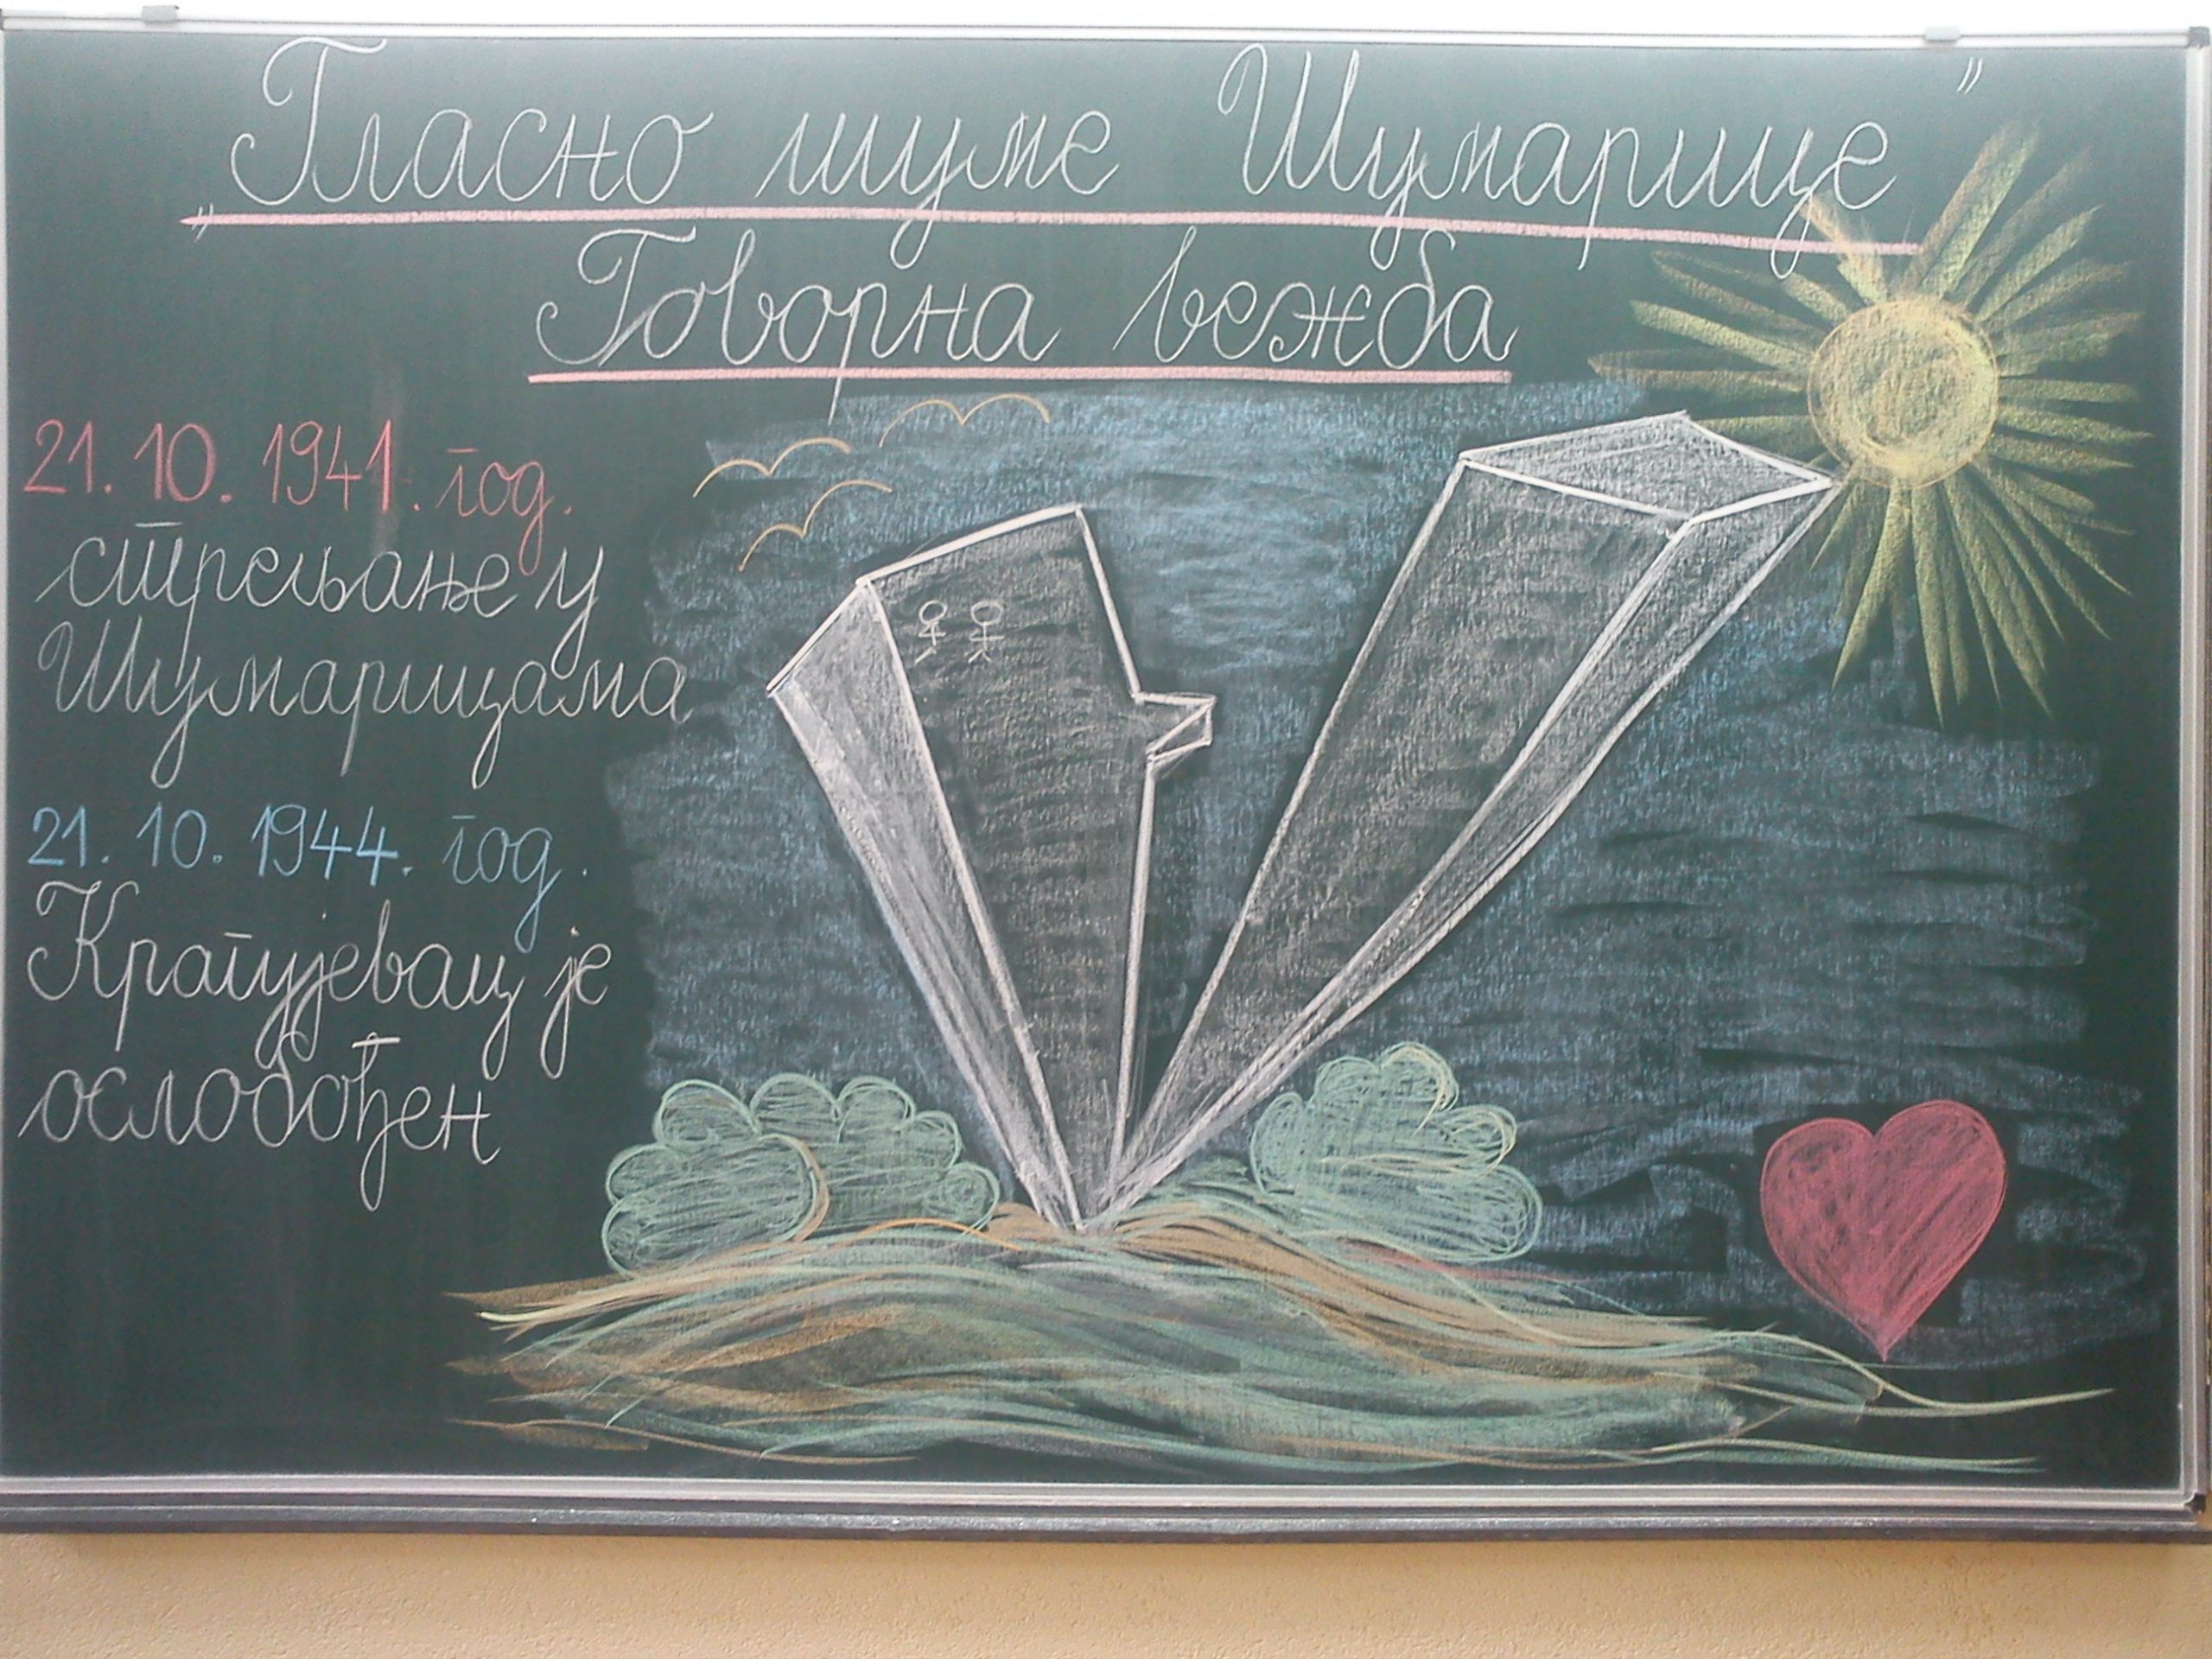 „Гласно шуме Шумарице”
Говорна вежба
21. 10. 1941. год.
стрељање у
Шумарицама
21. 10. 1944. год.
Крагујевац је
ослобођен